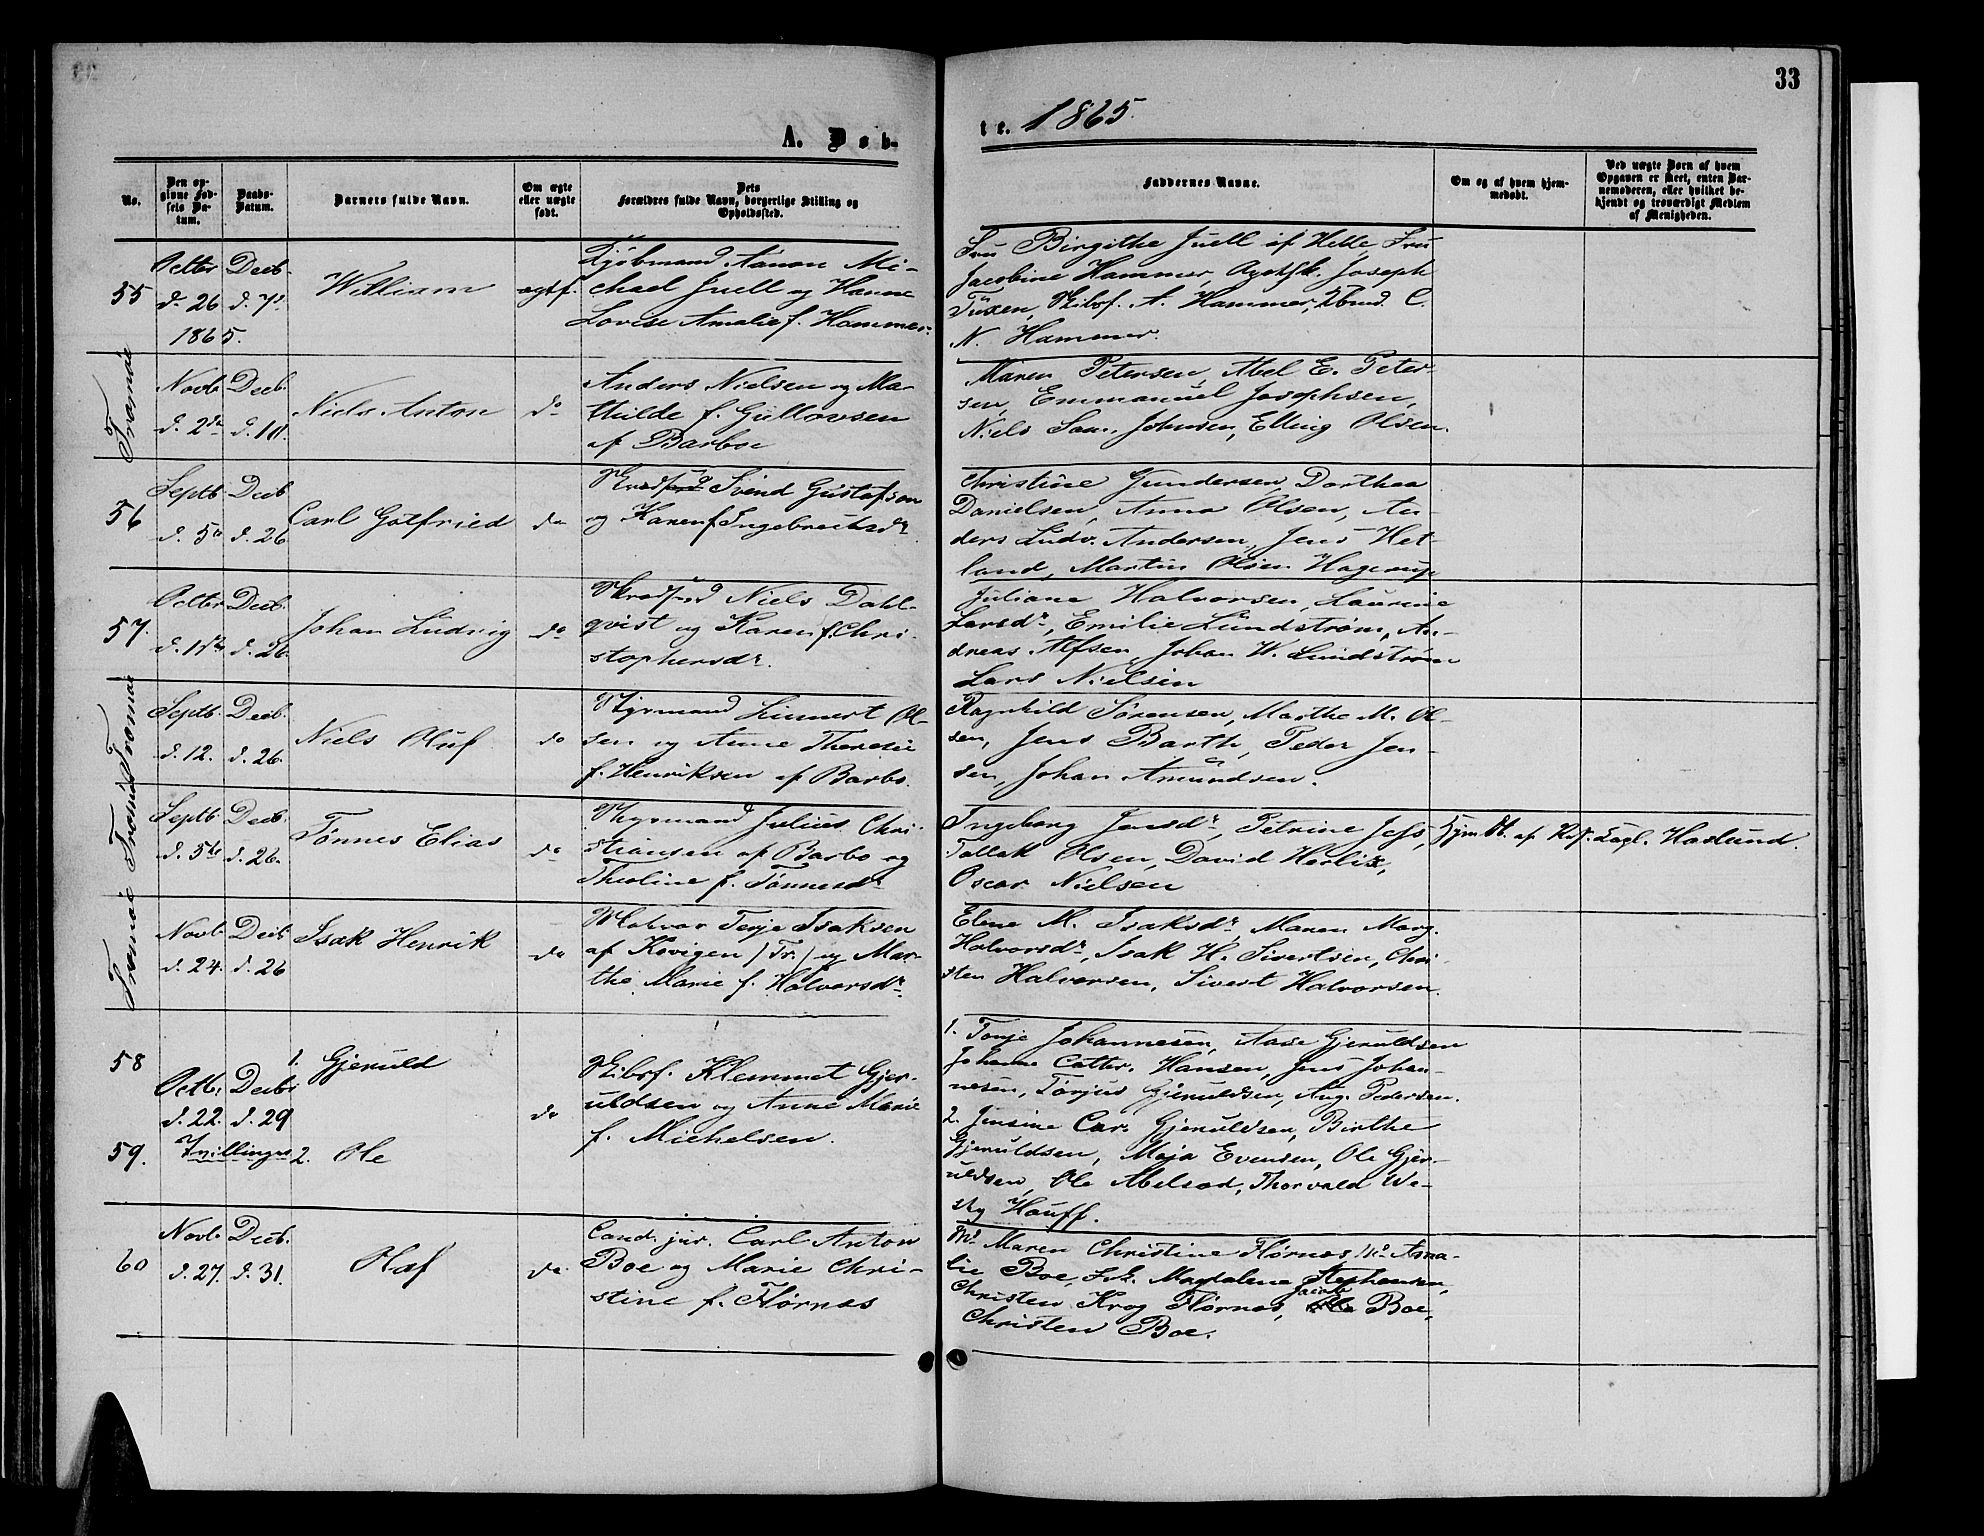 33
A. Døb-
te. 1865.
No.
Den op-
givne Fød-
sels Da-
tum.
Daabs-
Datum.
Barnets fulde Navn.
Om ægte
eller uægte
født.
Dets
Forældres fulde Navn, borgerlige Stilling og
Opholdssted.
Faddernes Navne.
Om og af hvem hjem-
medøbt.
Ved uægte Børn af hvem
Opgaven er skeet, enten Bar-
nemoderen, eller hvilket be-
kjendt og troværdigt Medlem
af Menigheden.
55
Octbr
d. 26
1865.
Decb.
d. 7d.
William
ægtef.
Kjøbmand Aanon Mi-
chael Juell og Hanne
Lovise Amalie f. Hammer.
Fru Birgithe Juell af Helle, Fru
Jacobine Hammer, Joseph
Tuxen, Skibsf. A. Hammer, C.
N. Hammer.
Tromøe
Novb.
d. 2de
Decb.
d. 10.
Niels Anton
do
Anders Nielsen og Ma-
thilde f. Gullovsen
af Barboe
Maren Petersen, Abel E. Peter-
sen, Emmanuel Josephsen,
Niels Sam. Johnsen, Elling Olsen.
56
Septb.
d. 5te
Decb
d. 26
Carl Gotfried
do
Svend Gustafson
og Karen f. Ingebretsdr.
Christine Gundersen, Dorthea
Danielsen, Anna Olsen, An-
ders Ludv. Andersen, Jens Het-
land, Martin Olsen Hagerup
57.
Octbr
Decb.
d. 26.
Johan Ludvig
do
Niels Dahl-
qvist og Karen f. Chri-
stophersdr.
Juliane Halvorsen, Laurine
Larsdr, Emilie Lundstrøm, An-
dreas Alfsen, Johan W. Lundstrøm
Lars Nielsen
Tromøe
Septb.
d. 12.
Decb.
d. 26.
Niels Oluf
do
Styrmand Linnert Ol-
sen og Anne Theresie
f. Henriksen af Barbo.
Ragnhild Sørensen, Marthe M. Ol-
sen, Jens Barth, Peder Jen-
sen, Johan Amundsen.
Tromøe
Septb.
d. 5te
Decb.
d. 26.
Tønnes Elias
do
Styrmand Julius Chri-
stiansen af Barbo og
Theoline f. Tønnesdr
Ingeborg Jensdr, Petrine Jess,
Tallak Olsen, David Herlin,
Oscar Nielsen
Hjm.dt. af Haslund.
Tromøe
Novb.
d. 24.
Decb
d. 26
Isak Henrik
do
Matros Terje Isaksen
af Kovigen (Tr.) og Mar-
the Marie f. Halvorsdr.
Elene M. Isaksdr, Maren Marg.
Halvorsdr, Isak H. Sivertsen, Chri-
sten Halvorsen, Sivert Halvorsen.
58
Octb.
d. 22.
Decb
d. 29
1. Gjeruld
do
Skibsf. Klemmet Gjer-
uldsen og Anne Marie
f. Michelsen.
1. Tonje Johannesen, Aase Gjeruldsen
Johanne Cathr. Hansen, Jens Johan-
nesen, Torjus Gjeruldsen, Aug. Pedersen.
59.
Tvillinger 2. Ole
2. Jensine Car. Gjeruldsen, Birthe
Gjeruldsen, Maja Evensen, Ole Gjer-
uldsen, Ole Abelsød, Thorvald We-
sky Hauff.
60
Novb.
d. 27.
Decb.
d. 31.
Olaf
do
Cand. jur. Carl Anton
Boe og Marie Chri-
stine f. Flørnæs
Md. Maren Christine Flørnæs, Md. Ama-
lie Boe, Frk. Magdalene Stephansen,
Christen Krog Flørnæs, Jacob Boe,
Christen Boe.